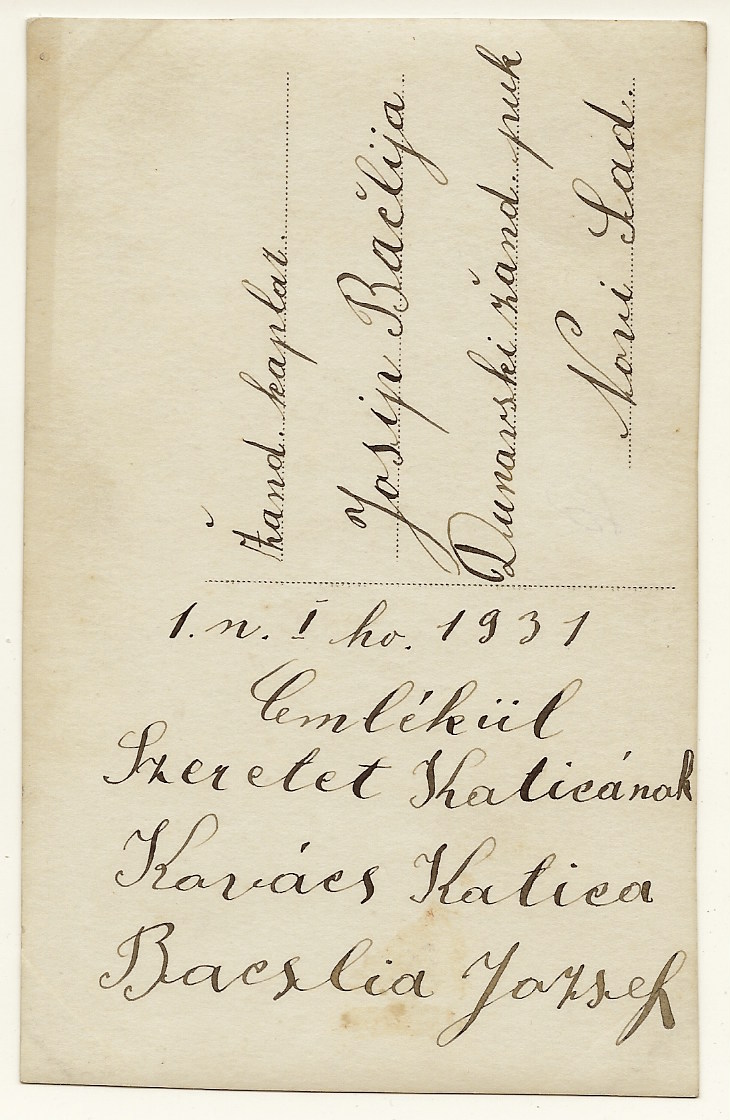 Žand. kaplar.
Josip Bačlija
Dunavski žand. puk
Novi Sad.
1. n. I ho. 1931
Emlékül
Szeretet Katicának
Kovács Katica
Bacslia Jozsef